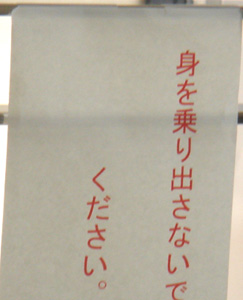 身を乗り出さないで
ください。